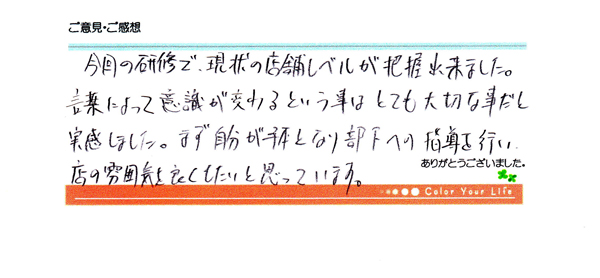 ご意見・ご感想
今回の研修で、現状の店舗レベルが把握出来ました。
言葉によって意識が変わるという事はとても大切な事だと
実感しました。まず自分が手本となり部下への指導を行い
ありがとうございました。
店の雰囲気を良くしたいと思っています。
Color Your Life